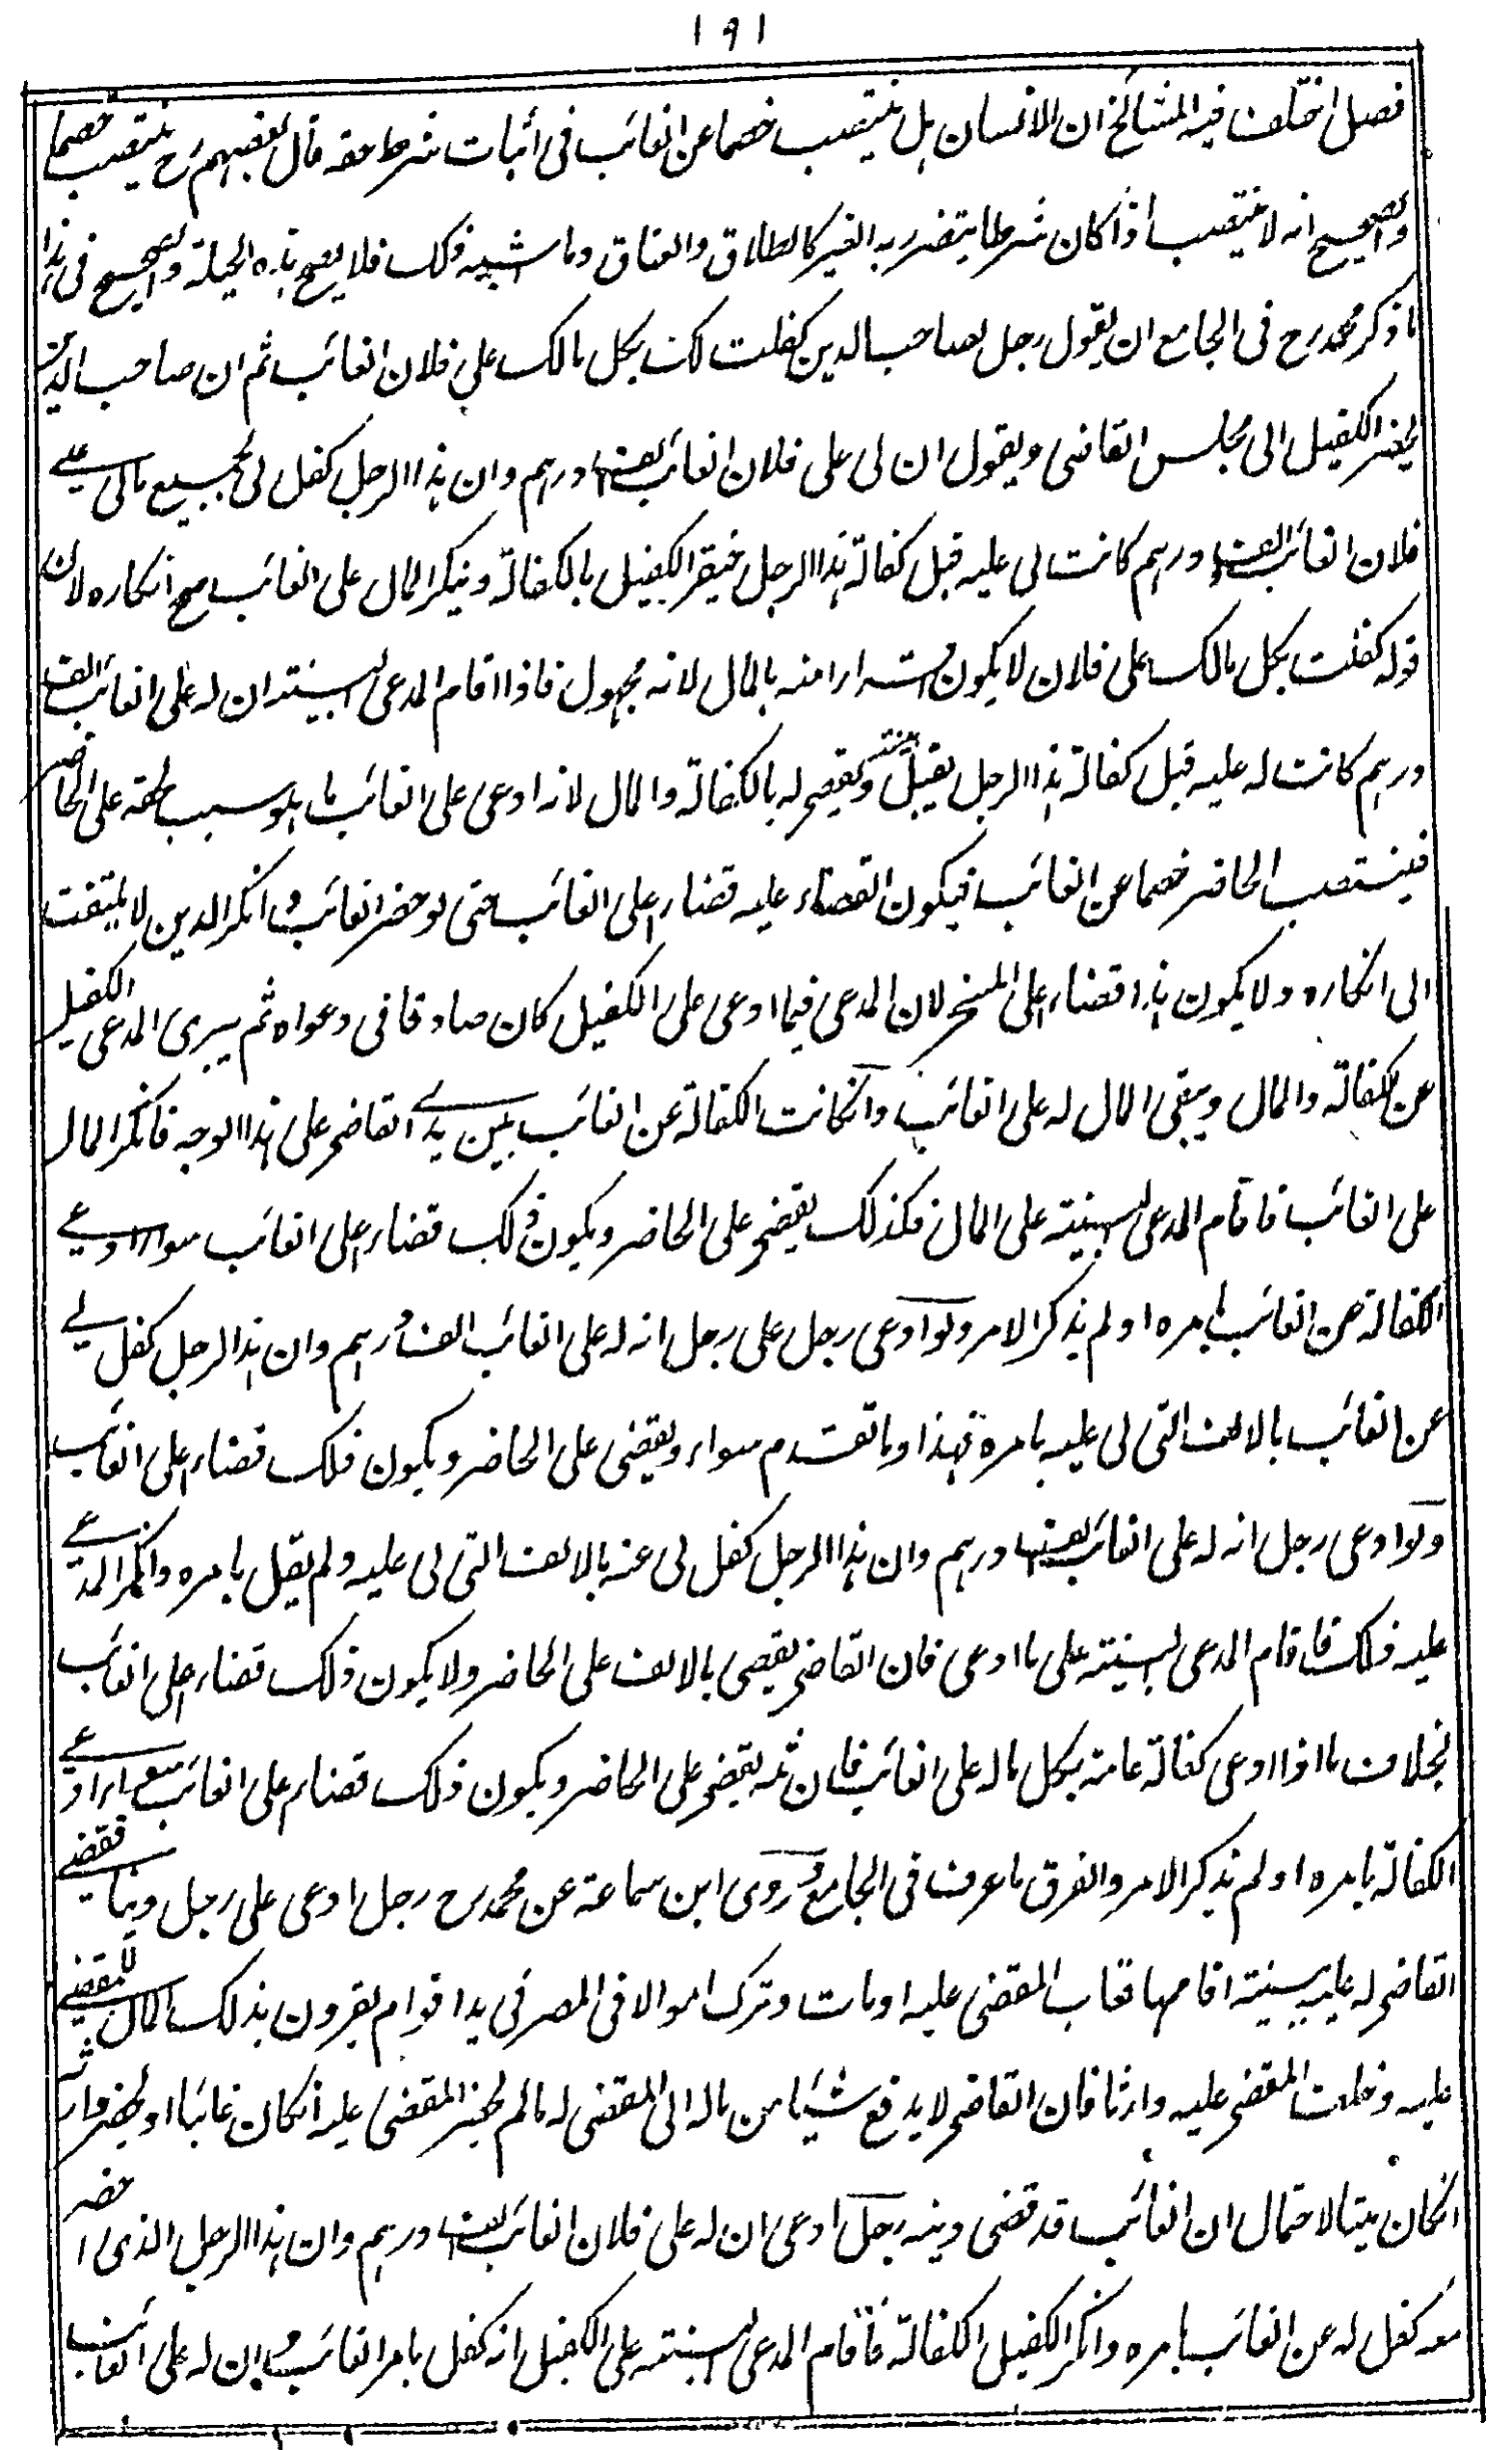 ١٩١
فصل اختلف فيه المشائخ ان الانسان هل ينتصب خصما عن الغائب فى اثبات شرط حقه قال بعضهم رح ينتصب خصما
والصحيح انه لا ينتصب اذا كان شرطا يتضرر به الغير كالطلاق والعتاق وما اشبه ذلك فلا يصح هذه الحيلة والصحيح فى هذا
ما ذكر محمد رح فى الجامع ان يقول رجل لصاحب الدين كفلت لك بكل مالك على فلان الغائب ثم ان صاحب الدين
يحضر الكفيل الى مجلس القاضى ويقول ان لى على فلان الغائب الف درهم وان هذا الرجل كفل لى بجميع مالى على
فلان الغائب الف درهم كانت لى عليه قبل كفالة هذا الرجل فيقر الكفيل بالكفالة وينكر المال على الغائب صح انكاره لان
قوله كفلت بكل مالك على فلان لا يكون اقرارا منه بالمال لانه مجهول فاذا اقام المدعى البينة ان له على الغائب الف
درهم كانت له عليه قبل كفالة هذا الرجل يقبل بينته ويقضى له بالكفالة والمال لانه ادعى على الغائب ما هو سبب لحقه على الحاضر
فينتصب الحاضر خصما عن الغائب فيكون القضاء عليه قضاء على الغائب حتى لو حضر الغائب وانكر الدين لا يلتفت
الى انكاره ولا يكون هذا قضاء على المسخر لان المدعى فيما ادعى على الكفيل كان صادقا فى دعواه ثم يبرى المدعى الكفيل
عن الكفالة والمال ويبقى المال له على الغائب وان كانت الكفالة عن الغائب بين يدى القاضى على هذا الوجه فانكر المال
على الغائب فاقام المدعى البينة على المال فكذلك يقضى على الحاضر ويكون ذلك قضاء على الغائب سواء ادعى
الكفالة عن الغائب بامره او لم يذكر الامر ولو ادعى رجل على رجل انه له على الغائب الف درهم وان هذا الرجل كفل لى
عن الغائب بالالف التى لى عليه بامره فهذا وما تقدم سواء ويقضى على الحاضر ويكون ذلك قضاء على الغائب
ولو ادعى رجل انه له على الغائب الف درهم وان هذا الرجل كفل لى عنه بالالف التى لى عليه ولم يقل بامره وانكر المدعى
عليه ذلك فاقام المدعى البينة على ما ادعى فان القاضى يقضى بالالف على الحاضر ولا يكون ذلك قضاء على الغائب
بخلاف ما اذا ادعى كفالة عامة بكل ماله على الغائب فان ثمه يقضى على الحاضر ويكون ذلك قضاء على الغائب سواء ادعى
الكفالة بامره او لم يذكر الامر والفرق ما عرف فى الجامع وروى ابن سماعة عن محمد رح رجل ادعى على رجل دينا فقضى
القاضى له عليه ببينة اقامها فغاب المقضى عليه او مات وترك اموالا فى المصر فى يد اقوام يقرون بذلك المال للمقضى
عليه وخلف المقضى عليه وارثا فان القاضى لا يدفع شيئا من ماله الى المقضى له ما لم يحضر المقضى عليه ان كان غائبا او يحضر وارثه
ان كان ميتا لاحتمال ان الغائب قد قضى دينه رجل ادعى ان له على فلان الغائب الف درهم وان هذا الرجل الذى احضر
معه كفل له عن الغائب بامره وانكر الكفيل الكفالة فاقام المدعى البينة على الكفيل انه كفل بامر الغائب وان له على الغائب